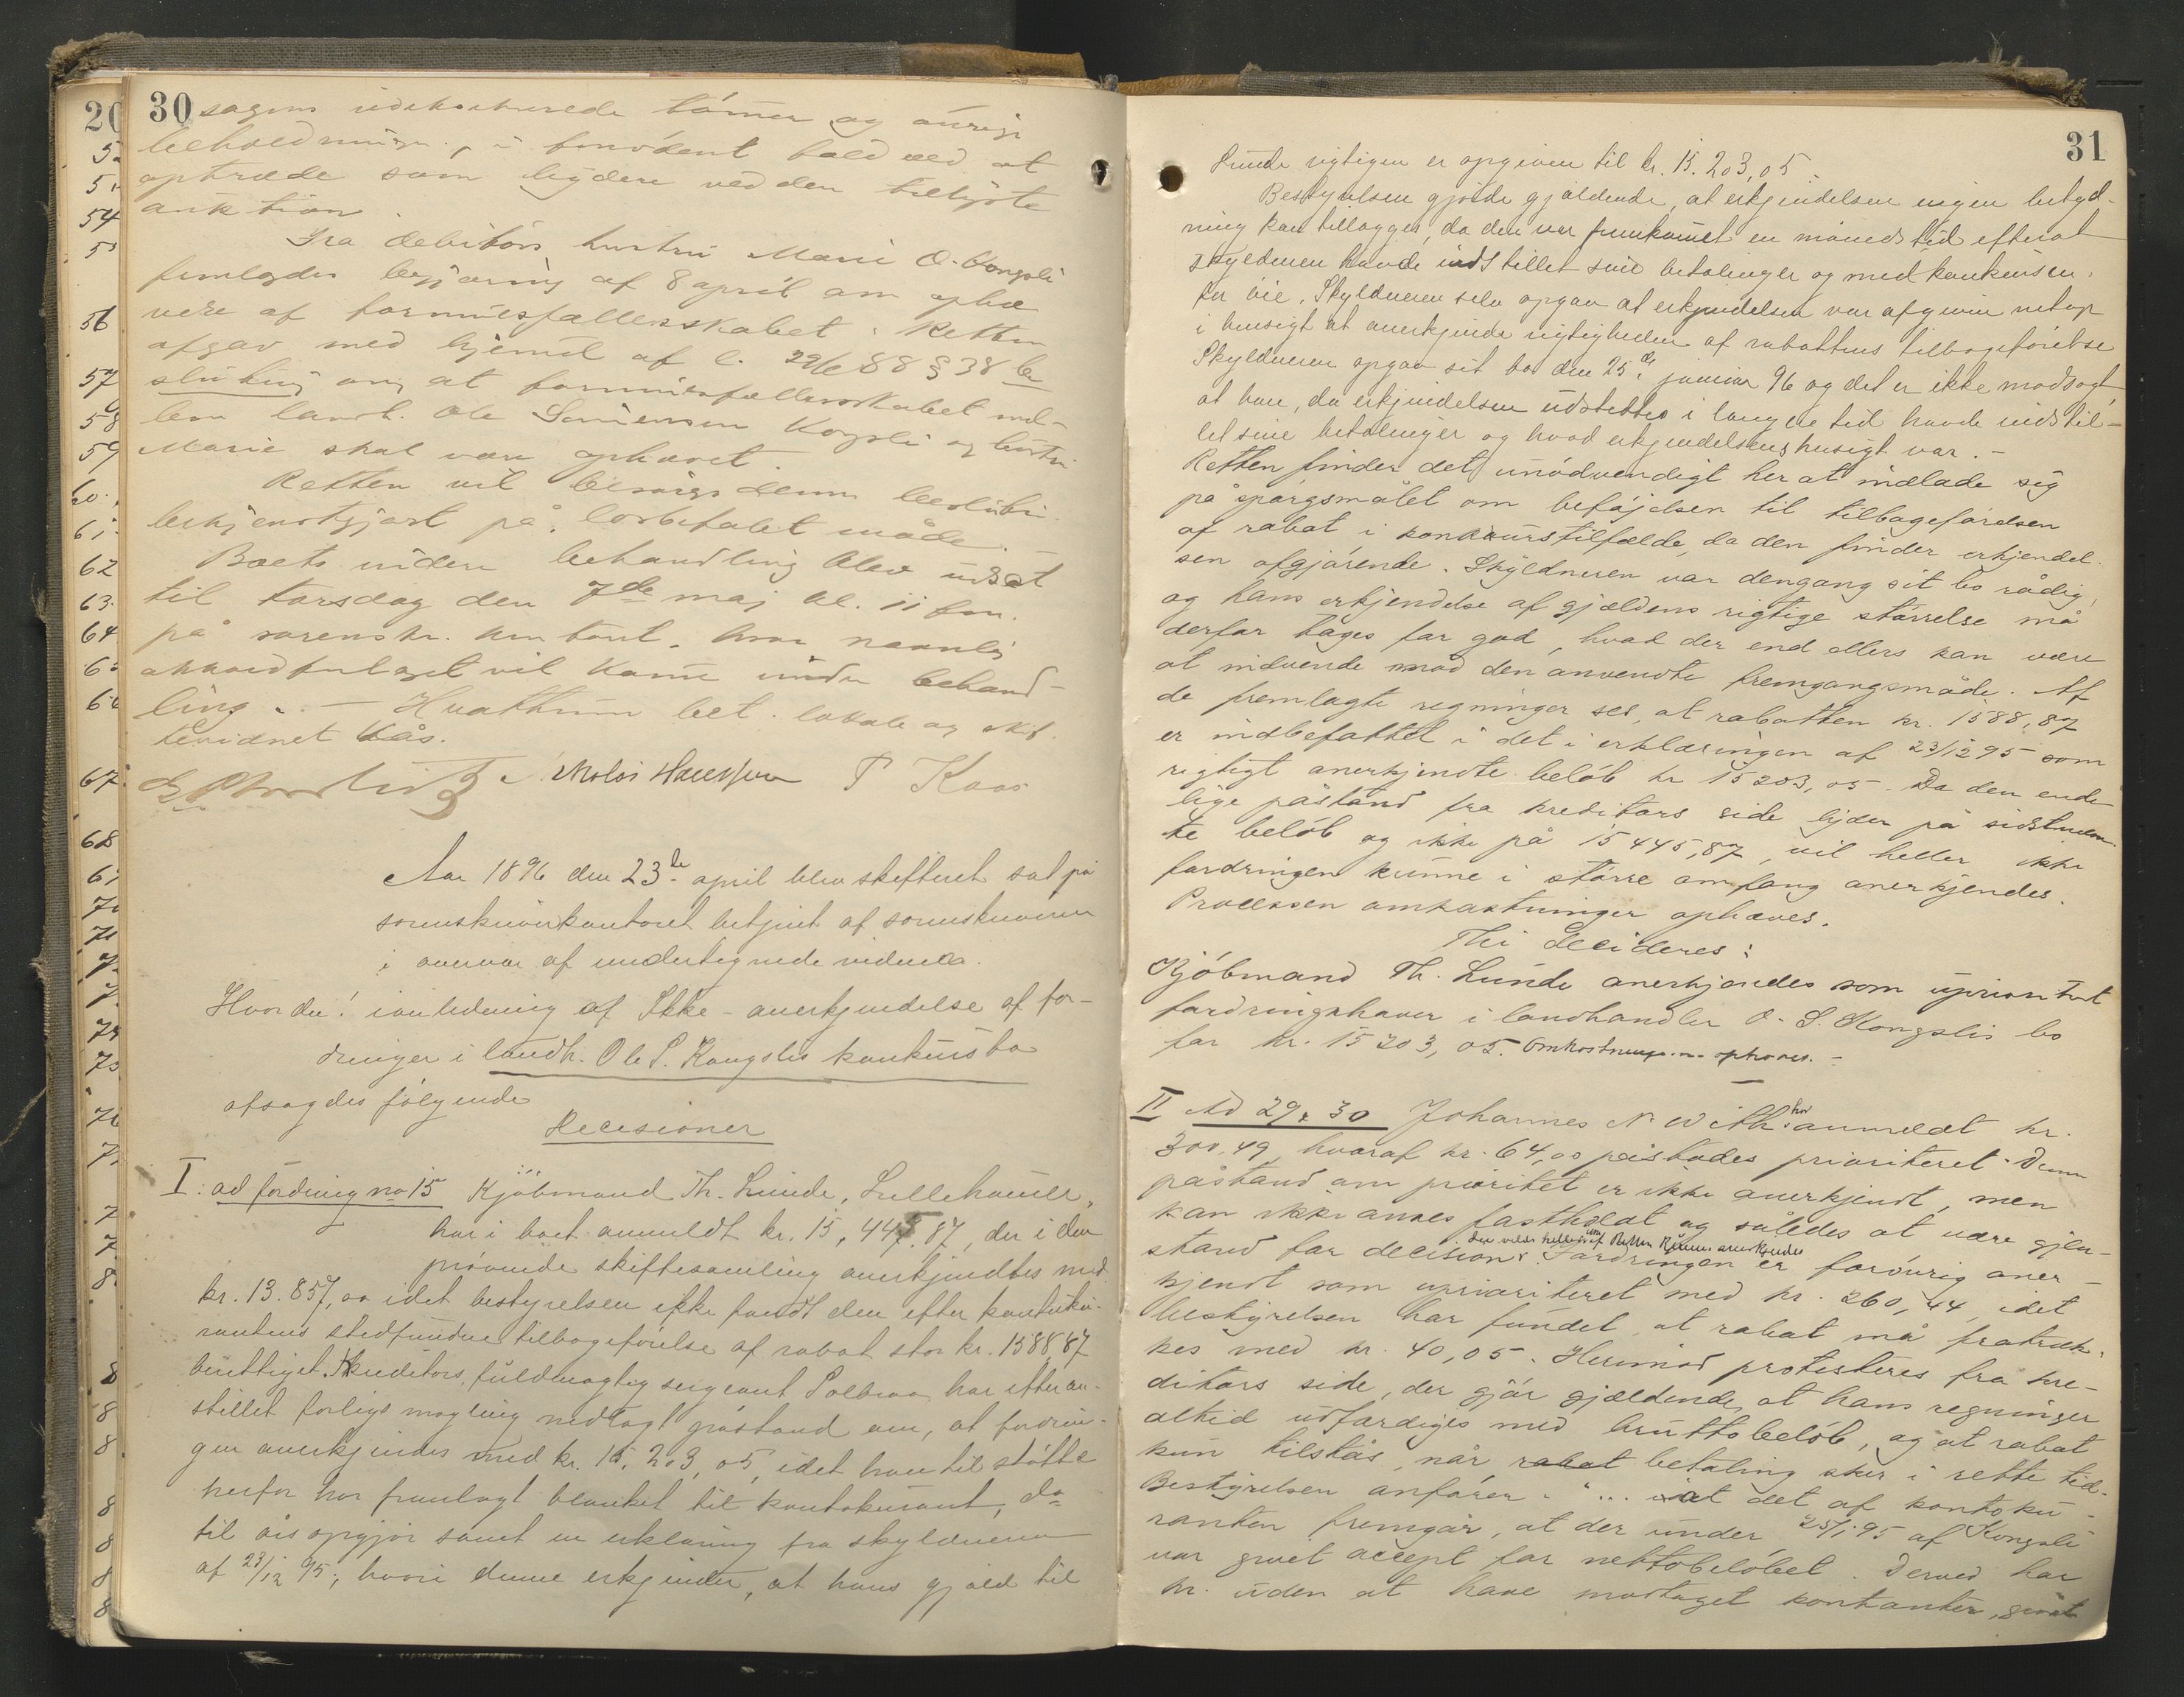 30
sagens udeksekverede tømmer og øvrige
beholdninger, i fornødent fald ved at
optræde som bydere ved den tillyste
auktion.
Fra debitors hustru Marie O. Kongsli
fremlagdes begjæring af 8 april om ophæ
velse af formuesfællesskabet. Retten
afgav med hjemel af l. 29/6 88 § 38 be
slutning om at formuesfællesskabet mel-
lem landh. Ole Kongsli og hustru
Marie skal være ophævet.
Retten vil besørge denne beslutn.
bekjendtgjort på lovbefalet måde.
Boets videre behandling blev udsat
til torsdag den 7de maj kl. 11 fm.
på sorenskr. kontor, hvor navnlig
akkordforslaget vil komme under behand-
ling. — Hvatthum bet. lokale og skf.
Kås.
P Kaas
Aar 1896 den 23de april blev skifteret sat på
sorenskriverkontoret betjent af sorenskriveren
i overvær af undertegnede vidner.
Hvorda! i anledning af Ikke-anerkjendelse af for-
dringer i landh. Ole S. Kongslis konkursbo
afsagdes følgende
Decisioner
I: ad fordring no 15 Kjøbmand Th. Lunde, Lillehammer,
har i boet anmeldt kr. 15,445.87, der i den
prøvende skiftesamling anerkjendtes med
kr. 13.857,00 idet bestyrelsen ikke fandt den efter kontoku-
rantens stedfundne tilbageførelse af rabat stor kr. 1588,87
berettiget. Kreditors fuldmægtig sergeant har efter an-
stillet forligs mægling nedlagt påstand om, at fordrin-
gen anerkjendes med kr. 15.203,05, idet han til støtte
herfor har fremlagt blanket til kontokurant, do
til års opgjør samt en erklæring fra skyldneren
af 23/12 95, hvori denne erkjender, at hans gjæld til
31
Lunde rigtigen er opgiven til kr. 15.203,05.
Bestyrelsen gjorde gjældende, at erkjendelsen ingen betyd-
ning kan tillægges, da den var fremkommet en måneds tid efterat
skyldneren havde indstillet sine betalinger og med konkursen
for øie. Skyldneren selv opgav at erkjendelsen var afgiven netop
i hensigt at anerkjende rigtigheden af rabattens tilbageførelse
Skyldneren opgav sit bo den 25de januar 96 og det er ikke modsagt,
at han, da erkjendelsen udstedtes i længere tid havde indstil-
let sine betalinger og hvad erkjendelsens hensigt var.-
Retten finder det unødvendigt her at indlade sig
på spørgsmålet om beføjelsen til tilbageførelsen
af rabat i konkurstilfælde, da den finder erkjendel-
sen afgjørende. Skyldneren var dengang sit bo rådig,
og hans erkjendelse af gjældens rigtige størrelse må
derfor tages for god, hvad der end ellers kan være
at indvende mod den anvendte fremgangsmåde. Af
de fremlagte regninger ses, at rabatten kr. 1588,87
er indbefattet i det i erklæringen af 23/12 95 som
rigtigt anerkjendte beløb kr 15203,05. Da den ende
lige påstand fra kreditors side lyder på sidstnævn-
te beløb og ikke på 15445,87, vil heller ikke
fordringen kunne i større omfang anerkjendes.
Processen omkostninger ophæves.
Thi decideres:
Kjøbmand Th. Lunde anerkjendes som uprioritert
fordringshaver i landhandler O. S. Kongslis bo
for kr. 15203,05. Omkostningerne ophæves.-
II Ad 29 & 30 Johannes N. With har anmeldt kr.
300,49, hvoraf kr. 64,00 påstodes prioriteret. Denne
påstand om prioritet er ikke anerkjendt, men
kan ikke anses fastholdt og således at være gjen-
stand for decision. Fordringen er forøvrig aner-
den vilde heller ikke af Retten kunne anerkjendes
kjendt som uprioriteret med kr. 260,44, idet
bestyrelsen har fundet, at rabat må fratræk-
kes med kr. 40,05. Herimod protesteres fra kre-
ditors side, der gjør gjældende, at hans regninger
altid udfærdiges med bruttobeløb, og at rabat
kun tilstås, når rabat betaling sker i rette tid.
Bestyrelsen anfører "... at det af kontoku-
ranten fremgår, at der under 25/1 95 af Kongsli
var givet accept for nettobeløbet. Derved har
hr. uden at have modtaget kontanter, givet